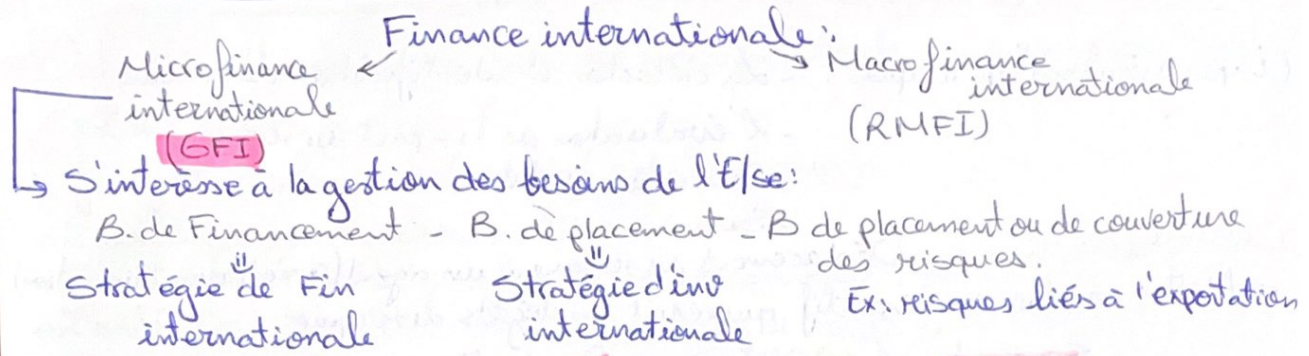 Finance internationale:
Microfinance internationale (GFI)
Macrofinance internationale (RMFI)
S'interèsse à la gestion des besoins de l'E/se:
B. de Financement - B. de placement - B de placement ou de couverture des risques.
Stratégie de Fin internationale
Stratégie d'inv internationale
Ex: risques liés à l'exportation